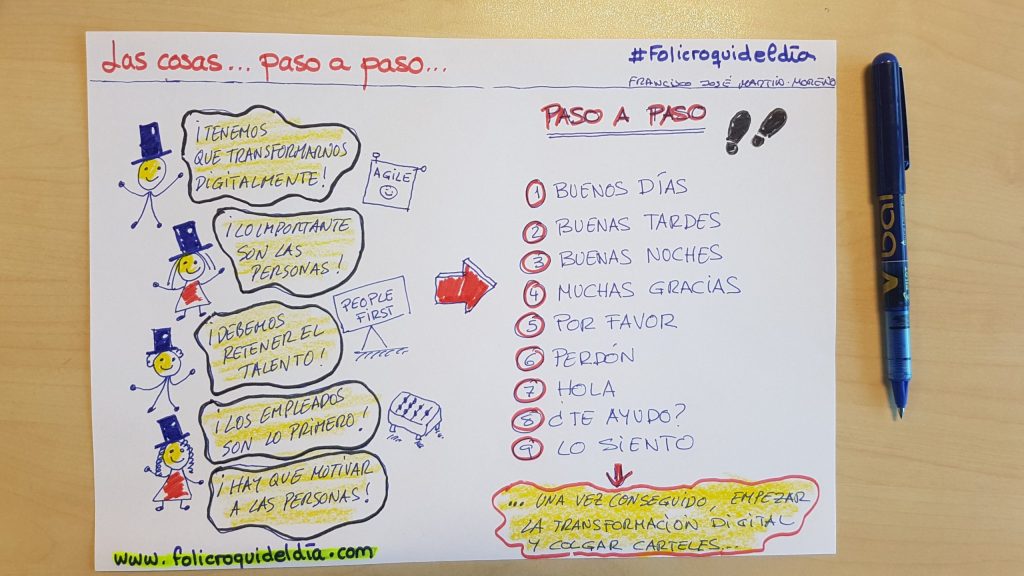 Las cosas... paso a paso...
#Folicroquideldía
FRANCISCO JOSÉ MARTÍN-MORENO
¡TENEMOS
QUE TRANSFORMARNOS
DIGITALMENTE!
AGILE
¡LO IMPORTANTE
SON LAS
PERSONAS!
PEOPLE
FIRST
¡DEBEMOS
RETENER EL
TALENTO!
¡LOS EMPLEADOS
SON LO PRIMERO!
¡HAY QUE MOTIVAR
A LAS PERSONAS!
www.folicroquideldía.com
PASO A PASO
1 BUENOS DÍAS
2 BUENAS TARDES
3 BUENAS NOCHES
4 MUCHAS GRACIAS
5 POR FAVOR
6 PERDÓN
7 HOLA
8 ¿TE AYUDO?
9 LO SIENTO
... UNA VEZ CONSEGUIDO, EMPEZAR
LA TRANSFORMACIÓN DIGITAL
Y COLGAR CARTELES...
V ball